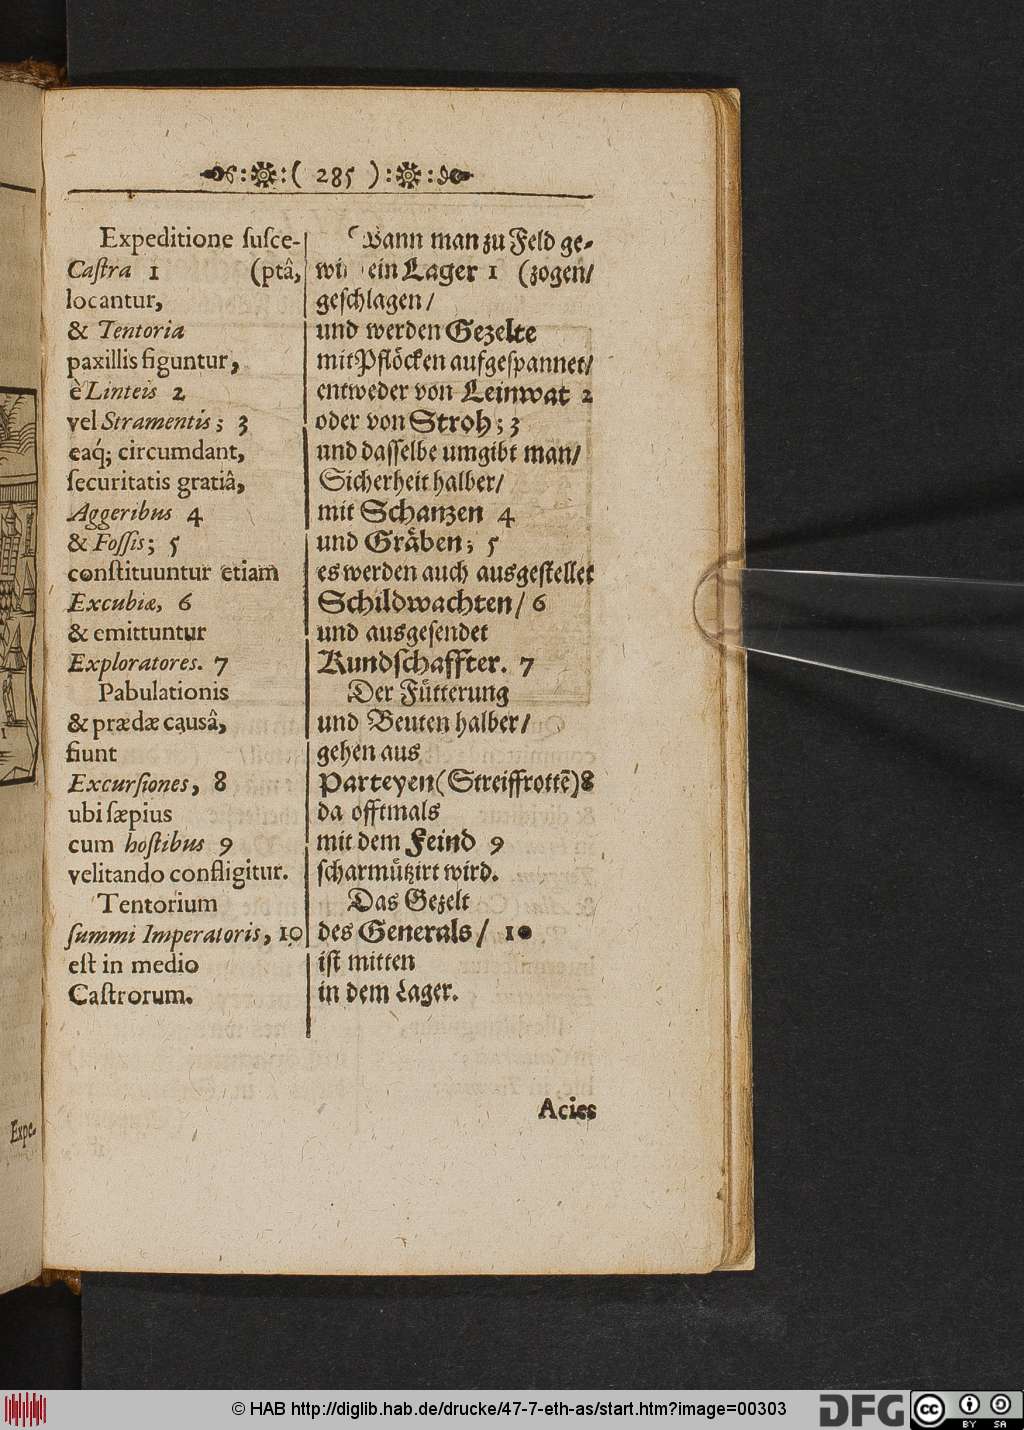 ( 285 )
Expeditione ſuſce-
Caſtra 1 (ptâ,
locantur,
& Tentoria
paxillis figuntur,
è Linteis 2
vel Stramentis; 3
eaq́; circumdant,
ſecuritatis gratiâ,
Aggeribus 4
& Foſſis; 5
conſtituuntur etiam
Excubiæ, 6
& emittuntur
Exploratores. 7
Pabulationis
& prædæ causâ,
fiunt
Excurſiones, 8
ubi ſæpius
cum hoſtibus 9
velitando confligitur.
Tentorium
ſummi Imperatoris, 10
eſt in medio
Caſtrorum.
Wann man zu Feld ge-
ein Lager 1 (zogen/
geſchlagen/
und werden Gezelte
mit Pflöcken aufgeſpannet/
entweder von Leinwat 2
oder von Stroh; 3
und daſſelbe umgibt man/
Sicherheit halber/
mit Schanzen 4
und Gräben; 5
es werden auch ausgeſtellet
Schildwachten/ 6
und ausgeſendet
Kundſchaffter. 7
Der Fütterung
und Beuten halber/
gehen aus
Parteyen (Streiffrottē) 8
da offtmals
mit dem Feind 9
ſcharmützirt wird.
Das Gezelt
des Generals/ 10
iſt mitten
in dem Lager.
Acies
Expe-
© HAB http://diglib.hab.de/drucke/47-7-eth-as/start.htm?image=00303
DFG
cc
BY SA